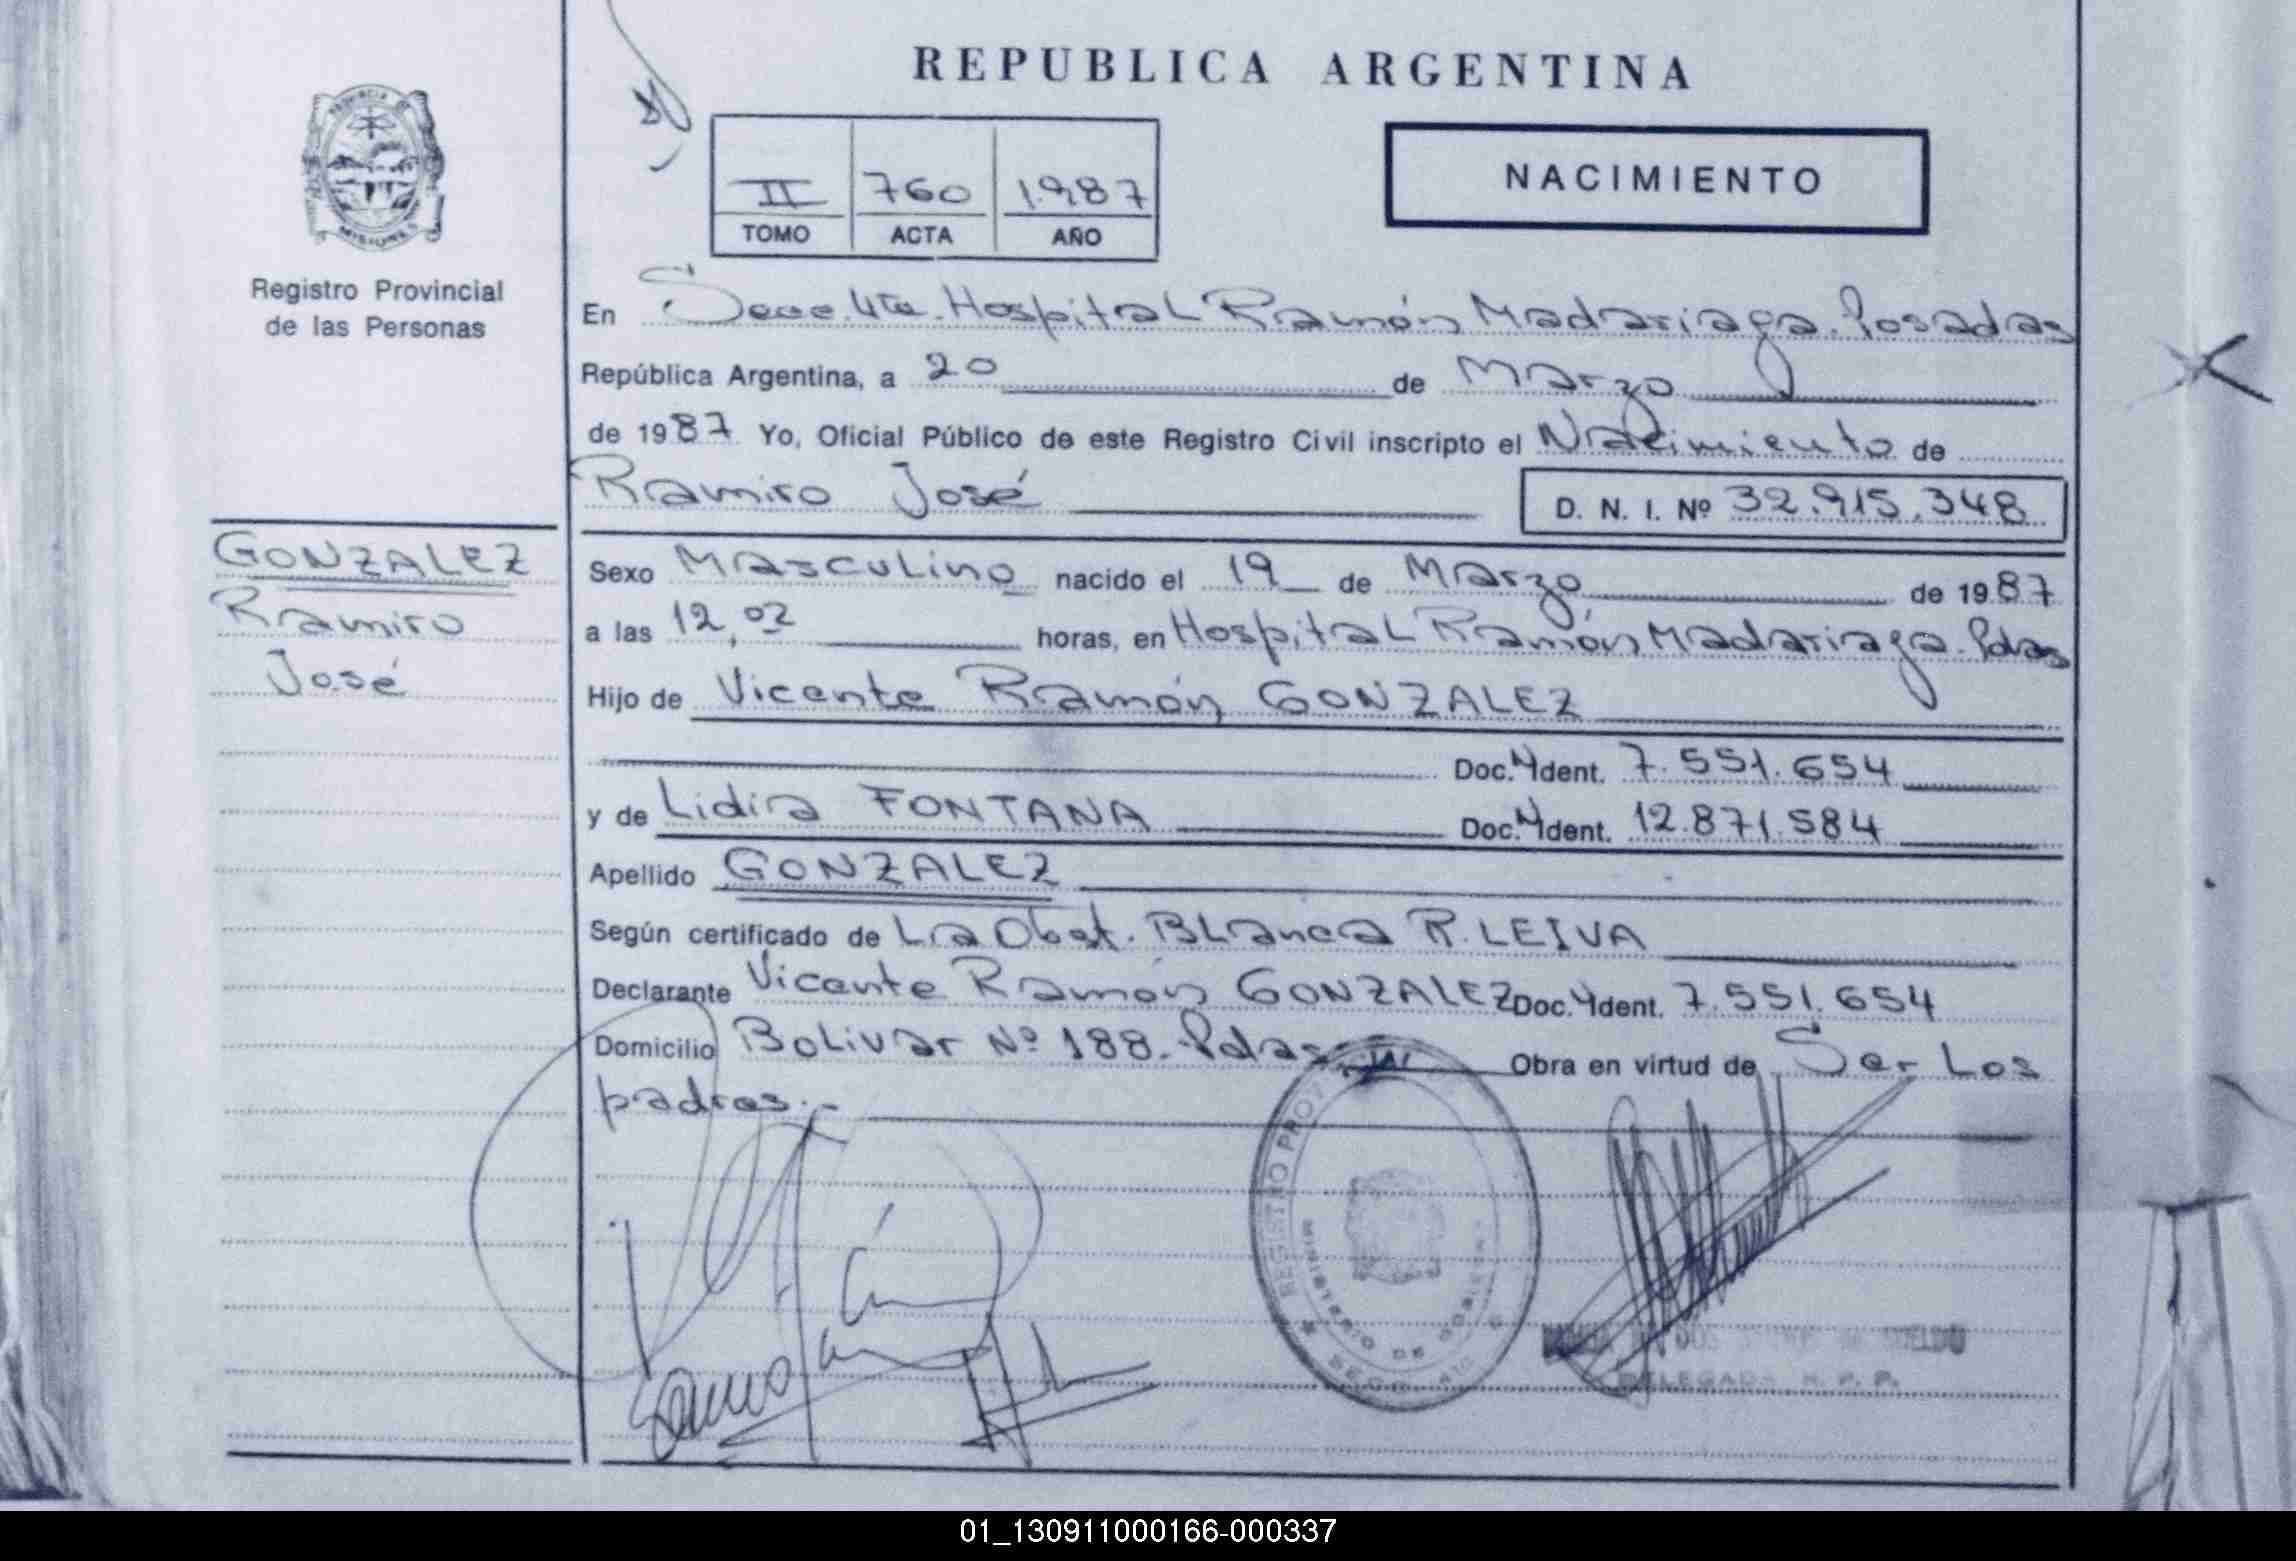 REPUBLICA ARGENTINA
PROVINCIA DE
MISIONES
Registro Provincial
de las Personas
II 760 1.987
TOMO ACTA AÑO
NACIMIENTO
En Secc. 4ta. Hospital Ramón Madariaga. Posadas
República Argentina, a 20 de Marzo
de 1987 Yo, Oficial Público de este Registro Civil inscripto el Nacimiento de
Ramiro José
D. N. I. Nº 32.915.348
GONZALEZ
Ramiro
José
Sexo Masculino nacido el 19 de Marzo de 1987
a las 12,02 horas, en Hospital Ramón Madariaga. Pdas
Hijo de Vicente Ramón GONZALEZ
Doc. Ident. 7.551.654
y de Lidia FONTANA Doc. Ident. 12.871.584
Apellido GONZALEZ
Según certificado de La Obst. Blanca R. LEIVA
Declarante Vicente Ramón GONZALEZ Doc. Ident. 7.551.654
Domicilio Bolivar Nº 188. Pdas Obra en virtud de Ser Los
padres.-
REGISTRO PROV
MINISTERIO DE GOBIERNO
DELEGADA R. P. P.
01_130911000166-000337